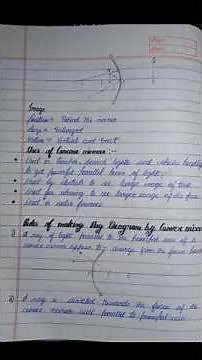 Image
Position = Behind the mirror
Size = Enlarged
Nature = Virtual and Erect
Uses of Concave mirror :-
Used in torches, search lights and vehicles headlights
to get powerful parallel beam of light.
Used by dentists to see large image of teeth
Used for shaving to see larger image of the face
Used in solar furnace
Rules of making Ray Diagram by Convex mirror
i) A ray of light parallel to the principal axis of a
convex mirror appear to diverge from the focus
ii) A ray is directed towards the focus of the
convex mirror will parallel to principal axis